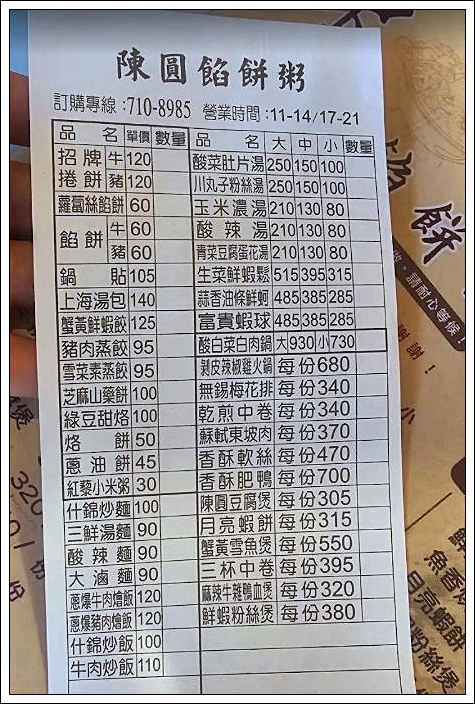 陳圓餡餅粥
訂購專線:710-8985 營業時間:11-14/17-21
品名 單價 數量
招牌捲餅 牛 120
豬 120
蘿蔔絲餡餅 60
餡餅 牛 60
豬 60
鍋貼 105
上海湯包 140
蟹黃鮮蝦餃 125
豬肉蒸餃 95
雪菜素蒸餃 95
芝麻山藥餅 100
綠豆甜烙 100
烙餅 50
蔥油餅 45
紅藜小米粥 30
什錦炒麵 100
三鮮湯麵 90
酸辣麵 90
大滷麵 90
蔥爆牛肉燴飯 120
蔥爆豬肉燴飯 120
什錦炒飯 100
牛肉炒飯 110
品名 大 中 小 數量
酸菜肚片湯 250 150 100
川丸子粉絲湯 250 150 100
玉米濃湯 210 130 80
酸辣湯 210 130 80
青菜豆腐蛋花湯 210 130 80
生菜鮮蝦鬆 515 395 315
蒜香油條鮮蚵 485 385 285
富貴蝦球 485 385 285
酸白菜白肉鍋 大930 小730
剝皮辣椒雞火鍋 每份680
無錫梅花排 每份340
乾煎中卷 每份340
蘇軾東坡肉 每份370
香酥軟絲 每份470
香酥肥鴨 每份700
陳圓豆腐煲 每份305
月亮蝦餅 每份315
蟹黃雪魚煲 每份550
三杯中卷 每份395
麻辣牛雜鴨血煲 每份320
鮮蝦粉絲煲 每份380
餅
請耐心等候!
謝謝!
小
煲
320
份
魚香
月亮蝦餅
粉絲煲